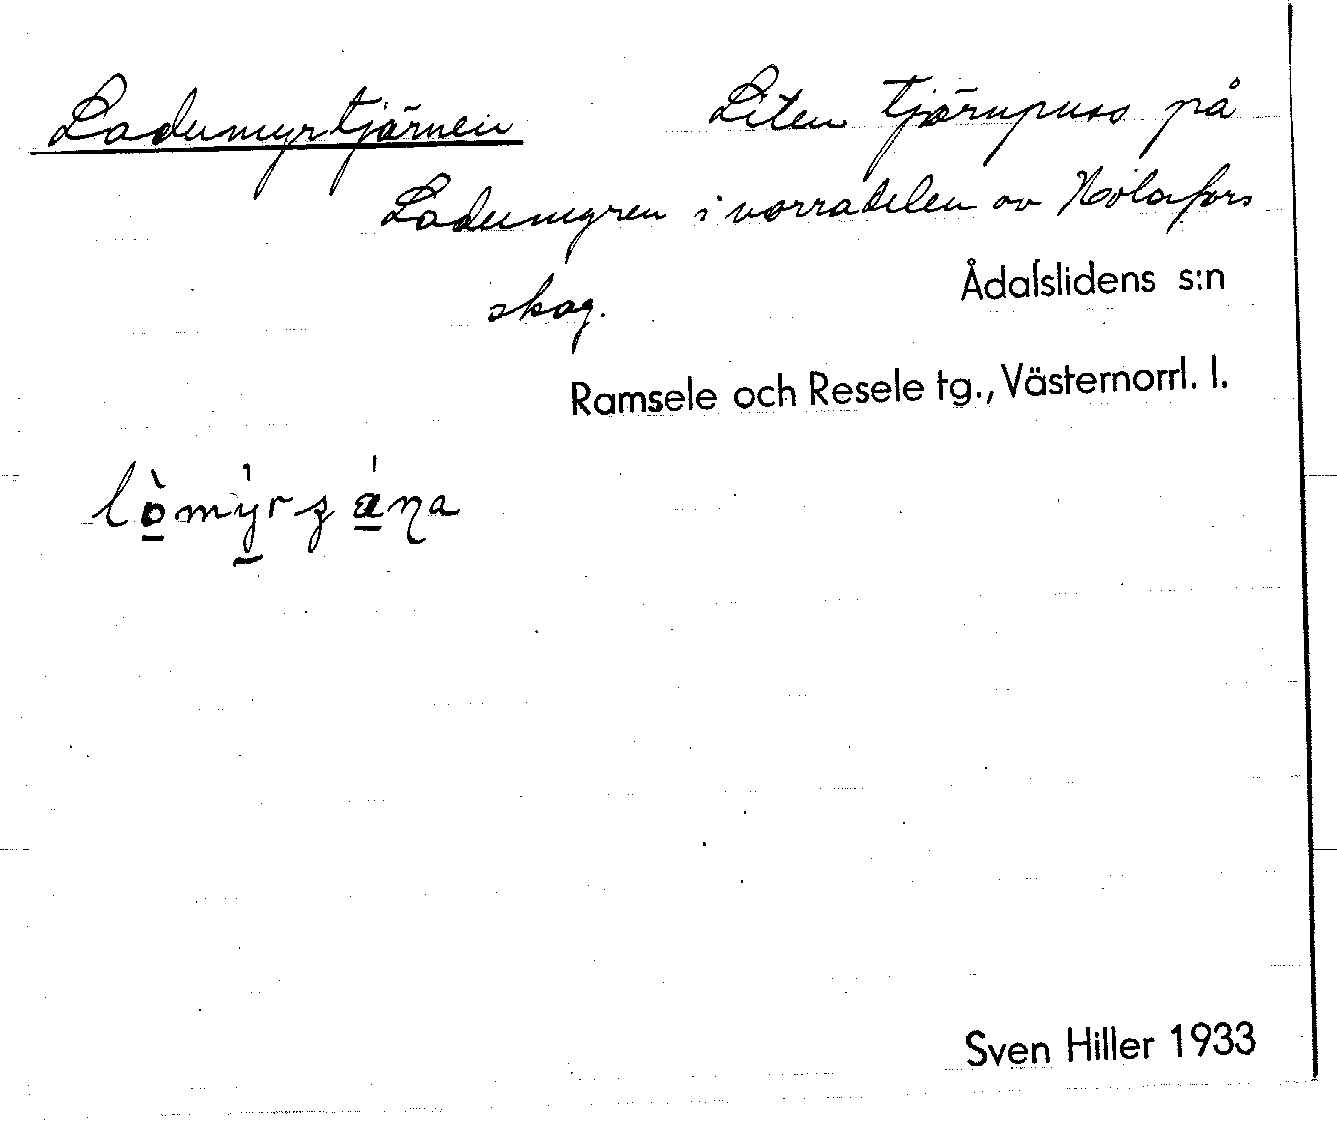 Ladumyrtjärnen Liten tjärnpuss på
Ladumyren i norradelen av Kölafors
skog.
Ådalslidens s:n
Ramsele och Resele tg., Västernorrl. l.
Sven Hiller 1933